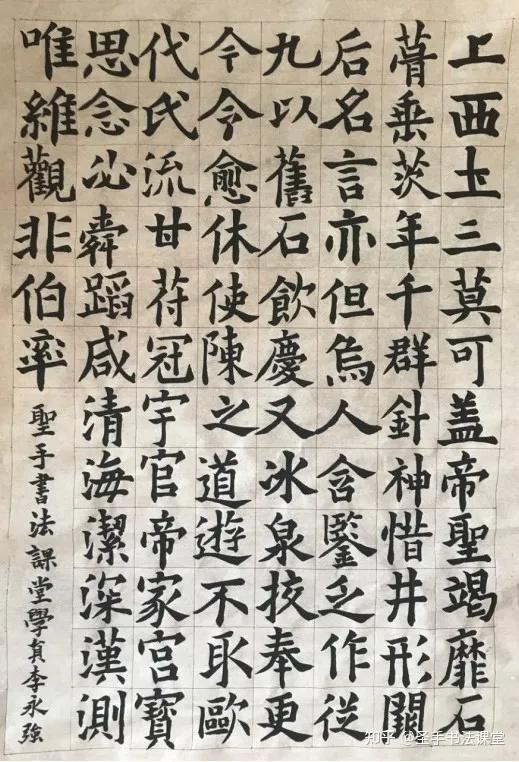 上西圡三莫可盖帝聖竭靡石
垂茨年千群針神惜井形關
后名言亦但烏人含鑒乏作從
九以舊石飲慶又冰泉挍奉更
今令愈休使陳之道遊不取歐
代氏流甘苻冠宇官帝家宮寶
思念必舜蹈咸清海潔深漢測
唯維觀非伯率
聖手書法課堂學員李永強
知乎 @圣手书法课堂